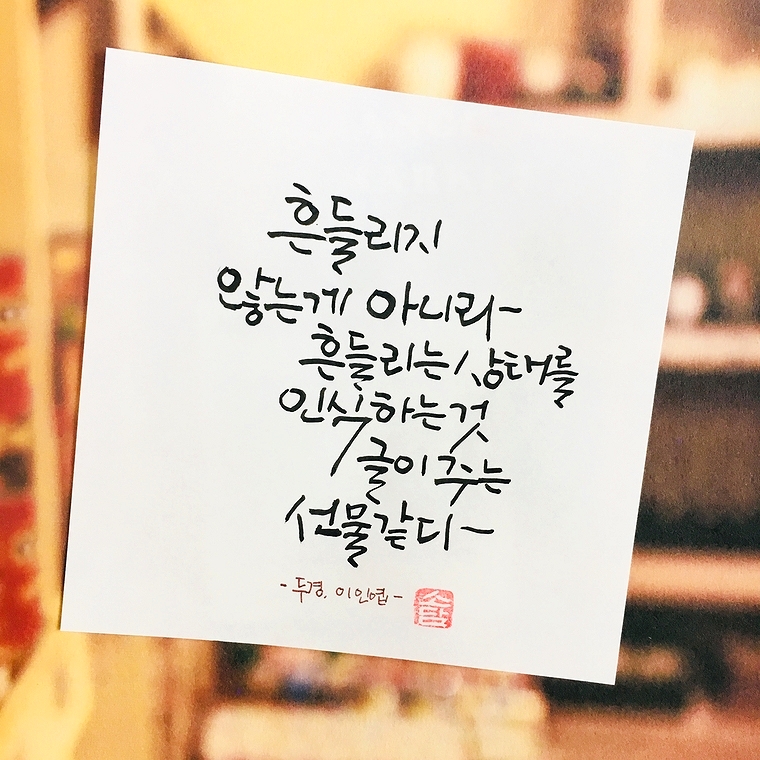 흔들리지
않는게 아니라~
흔들리는 상태를
인식하는 것
글이 주는
선물같다~
- 두경. 이인엽 -